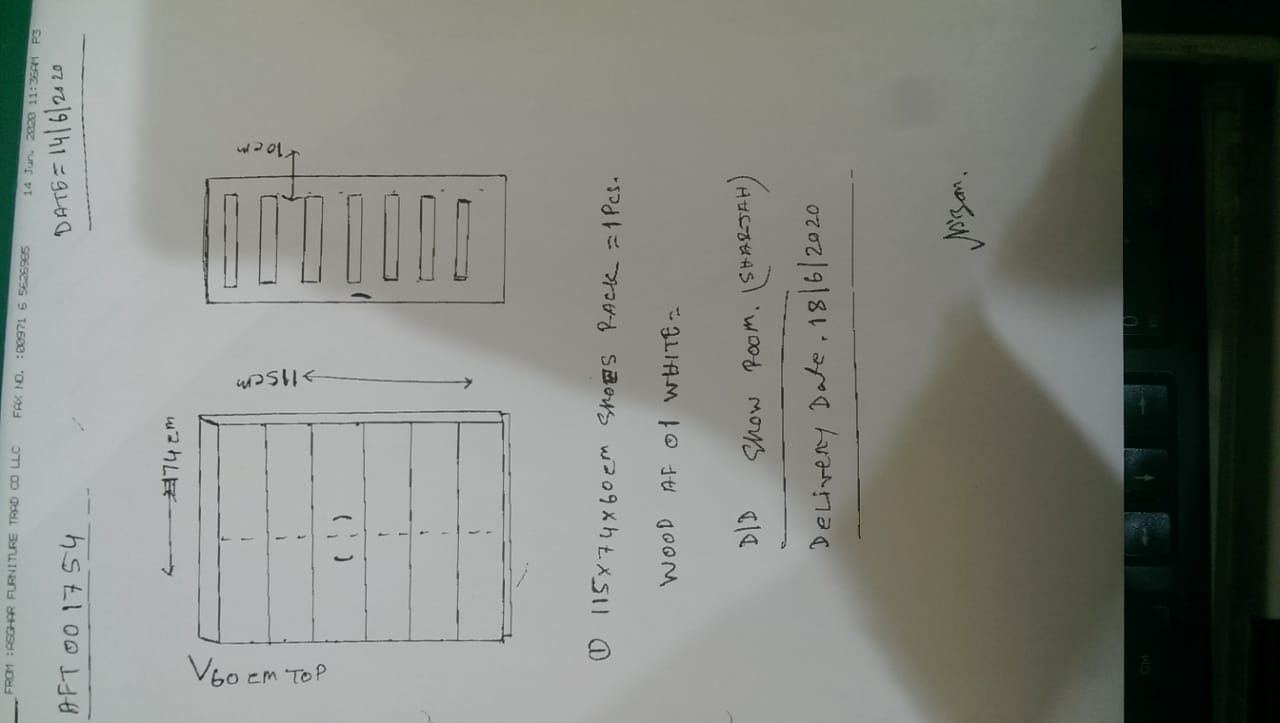 FROM :ASGHAR FURNITURE TRAD CO LLC FAX NO. :00971 6 5626985 14 Jun. 2020 11:36AM P3
AFT 001754
DATE = 14/6/2020
74 cm
60 cm TOP
115cm
10cm
① 115x74x60cm SHOES RACK = 1Pcs.
WOOD AF 01 WHITE =
D/D Show Room. (SHARJAH)
Delivery Date. 18/6/2020
Nizam.
Ctrl